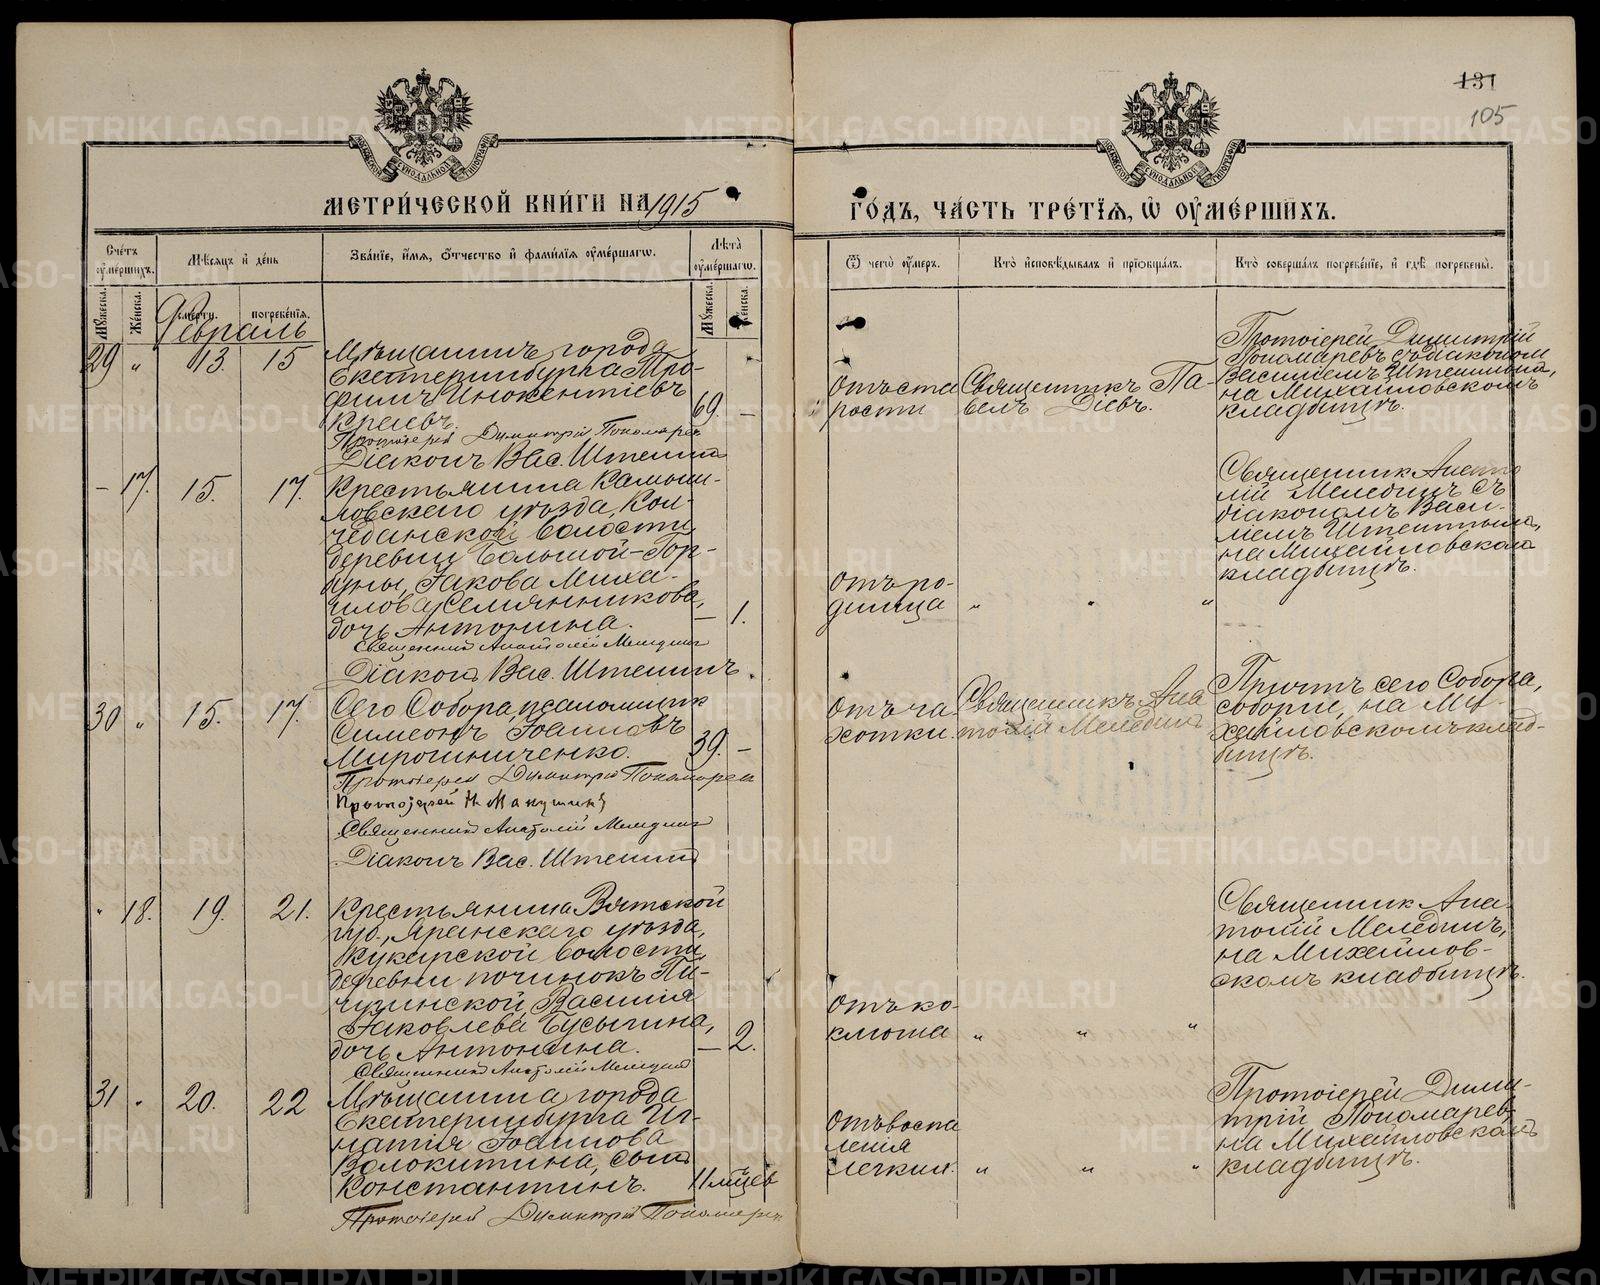 131
105
МЕТРИ́ЧЕСКОЙ КНИ́ГИ НА 1915
ГО́ДЪ, ЧА́СТЬ ТРЕ́ТІЯ, Ѡ҆ ОУ҆МЕ́РШИХЪ.
Сче́тъ оу҆ме́ршихъ.
Мꙋ́жеска.
Же́нска.
Мѣ́сяцъ и҆ де́нь
сме́рти.
погребе́нїѧ.
Зва́нїе, и҆́мѧ, ѻ҆́тчество и҆ фами́лїѧ оу҆ме́ршагѡ.
Лѣ́та̀ оу҆ме́ршагѡ.
Мꙋ́жеска.
Же́нска.
Ѿ чегѡ̀ оу҆́меръ.
Кто̀ и҆сповѣ́дывалъ и҆ прїѡбща́лъ.
Кто̀ соверша́лъ погребе́нїе, и҆ гдѣ̀ погребены̀.
Февраль
29 „ 13. 15
Мѣщанинъ города
Екатеринбурга Тро-
фимъ Инокентіевъ
69. –
Протоіерей Димитрій Пономаревъ
Діаконъ Вас. Штенинъ
Отъ ста
рости
Священникъ Па-
велъ Діевъ.
Протоіерей Димитрій
Пономаревъ съ діакономъ
Василіемъ Штенинымъ,
на Михайловскомъ
кладбищѣ.
– 17. 15. 17.
Крестьянина Камыш-
ловскаго уѣзда, Кол-
чеданской волости
деревни Большой-Гор-
буны, Іакова Миха-
илова Селянникова,
дочь Антонина.
– 1.
Священникъ Анатолій Мелединъ
Діаконъ Вас. Штенинъ.
Отъ ро-
димца
„ „ „
Священникъ Анато
лій Мелединъ съ
діакономъ Васи-
ліемъ Штенинымъ,
на Михайловскомъ
кладбищѣ.
30 „ 15. 17.
Сего Собора, псаломщикъ
Симеонъ Іоанновъ
Мирошниченко.
39. –
Протоіерей Димитрій Пономаревъ
Протоіерей Н. Макушинъ
Священникъ Анатолій Мелединъ
Діаконъ Вас. Штенинъ
Отъ ча
хотки.
Священникъ Ана
толій Мелединъ
Причтъ сего Собора,
соборне, на Ми-
хайловскомъ клад-
бищѣ.
„ 18. 19. 21.
Крестьянина Вятской
губ., Яранскаго уѣзда,
Кукарской волости
деревни починокъ Пи-
чузинской, Василія
Іаковлева Бусыгина,
дочь Антонина.
– 2.
Священникъ Анатолій Мелединъ
Отъ ко-
клюша
„ „ „
Священникъ Ана
толій Мелединъ,
на Михайлов-
скомъ кладбищѣ.
31 „ 20. 22
Мѣщанина города
Екатеринбурга Иг-
натія Іоаннова
Волокитина, сынъ
Константинъ.
11 мѣцев
Протоіерей Димитрій Пономаревъ
Отъ воспа
ленія
легкихъ.
„ „ „
Протоіерей Дими-
трій Пономаревъ
на Михайловскомъ
кладбищѣ.
METRIKI.GASO-URAL.RU